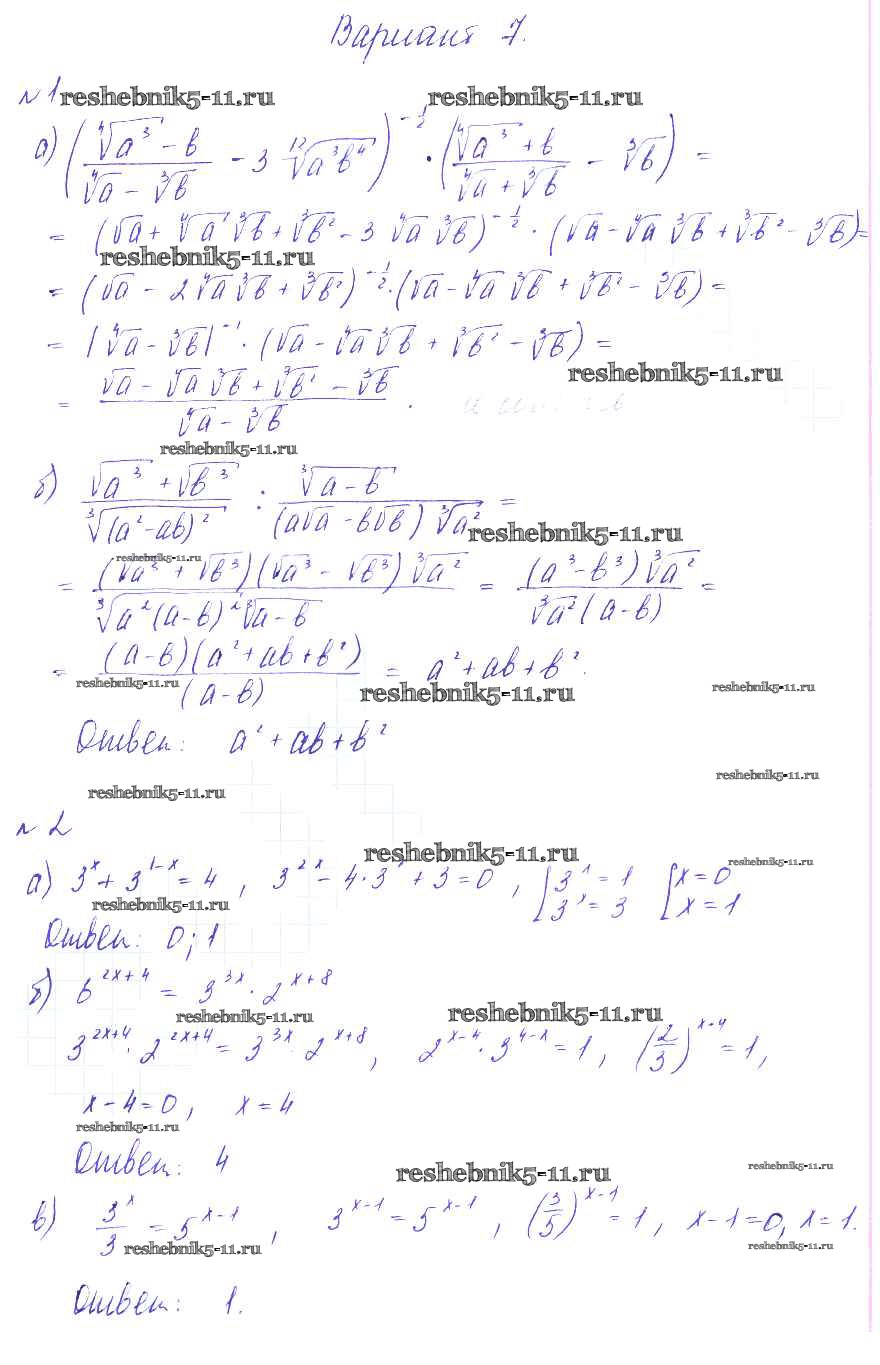 Вариант 7.
№ 1 reshebnik5-11.ru reshebnik5-11.ru
а) ( (∜a³ - b)/(∜a - ∛b) - 3 ¹²√(a³b⁴) )^(-1/2) · ( (∜a³ + b)/(∜a + ∛b) - ∛b ) =
= (√a + ∜a ∛b + ∛b² - 3 ∜a ∛b)^(-1/2) · (√a - ∜a ∛b + ∛b² - ∛b) =
reshebnik5-11.ru
= (√a - 2∜a ∛b + ∛b²)^(-1/2) · (√a - ∜a ∛b + ∛b² - ∛b) =
= |∜a - ∛b|^(-1) · (√a - ∜a ∛b + ∛b² - ∛b) =
reshebnik5-11.ru
= (√a - ∜a ∛b + ∛b² - ∛b)/(∜a - ∛b) .
reshebnik5-11.ru
б) (√a³ + √b³)/∛(a²-ab)² : ∛(a-b)/((a√a - b√b) ∛a²) =
reshebnik5-11.ru
reshebnik5-11.ru
= ((√a³ + √b³)(√a³ - √b³) ∛a²)/(∛(a²(a-b)²) ∛(a-b)) = ((a³-b³) ∛a²)/(∛a² (a-b)) =
= ((a-b)(a²+ab+b²))/(a-b) = a²+ab+b².
reshebnik5-11.ru reshebnik5-11.ru reshebnik5-11.ru
Ответ: a²+ab+b²
reshebnik5-11.ru
reshebnik5-11.ru
№ 2
reshebnik5-11.ru reshebnik5-11.ru
а) 3^x + 3^(1-x) = 4 , 3^(2x) - 4·3^x + 3 = 0 , [3^x = 1 [x = 0
3^x = 3 x = 1
reshebnik5-11.ru
Ответ: 0; 1
б) 6^(2x+4) = 3^(3x) · 2^(x+8)
reshebnik5-11.ru reshebnik5-11.ru
3^(2x+4) · 2^(2x+4) = 3^(3x) · 2^(x+8) , 2^(x-4) · 3^(4-x) = 1 , (2/3)^(x-4) = 1 ,
x - 4 = 0 , x = 4
reshebnik5-11.ru
Ответ: 4
reshebnik5-11.ru reshebnik5-11.ru
в) 3^x/3 = 5^(x-1) , 3^(x-1) = 5^(x-1) , (3/5)^(x-1) = 1 , x-1=0, x=1.
reshebnik5-11.ru reshebnik5-11.ru
Ответ: 1.